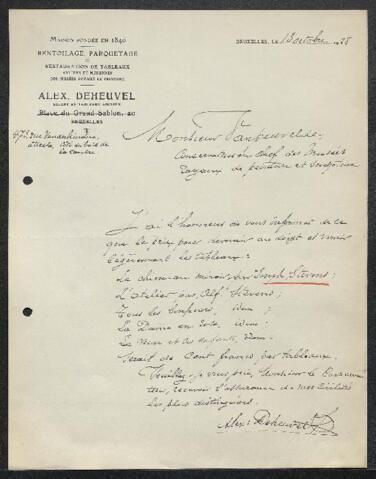 MAISON FONDÉE EN 1840
RENTOILAGE, PARQUETAGE
RESTAURATION DE TABLEAUX
ANCIENS ET MODERNES
DES MUSÉES ROYAUX DE PEINTURE
ALEX. DEHEUVEL
EXPERT EN TABLEAUX ANCIENS
Place du Grand Sablon, 20
BRUXELLES
BRUXELLES, LE 13 octobre 1928
475, rue Vanderkindere
Uccle,
la Cambre
Monsieur Vandevelde
Conservateur en chef des Musées
Royaux de peinture et sculpture
J'ai l'honneur de vous informer de ce
que le prix pour dévernir au doigt et vernir
légèrement les tableaux:
Le chien au miroir, par Joseph Stevens;
L'atelier par, Alf. Stevens;
Tous les bonheurs, idem;
La Dame en rose, idem;
La Veuve et ses enfants, idem.
serait de Cent francs par tableaux.
Veuillez, je vous prie, Monsieur le Conserva-
teur, recevoir l'assurance de mes civilités
les plus distinguées.
Alex: Deheuvel